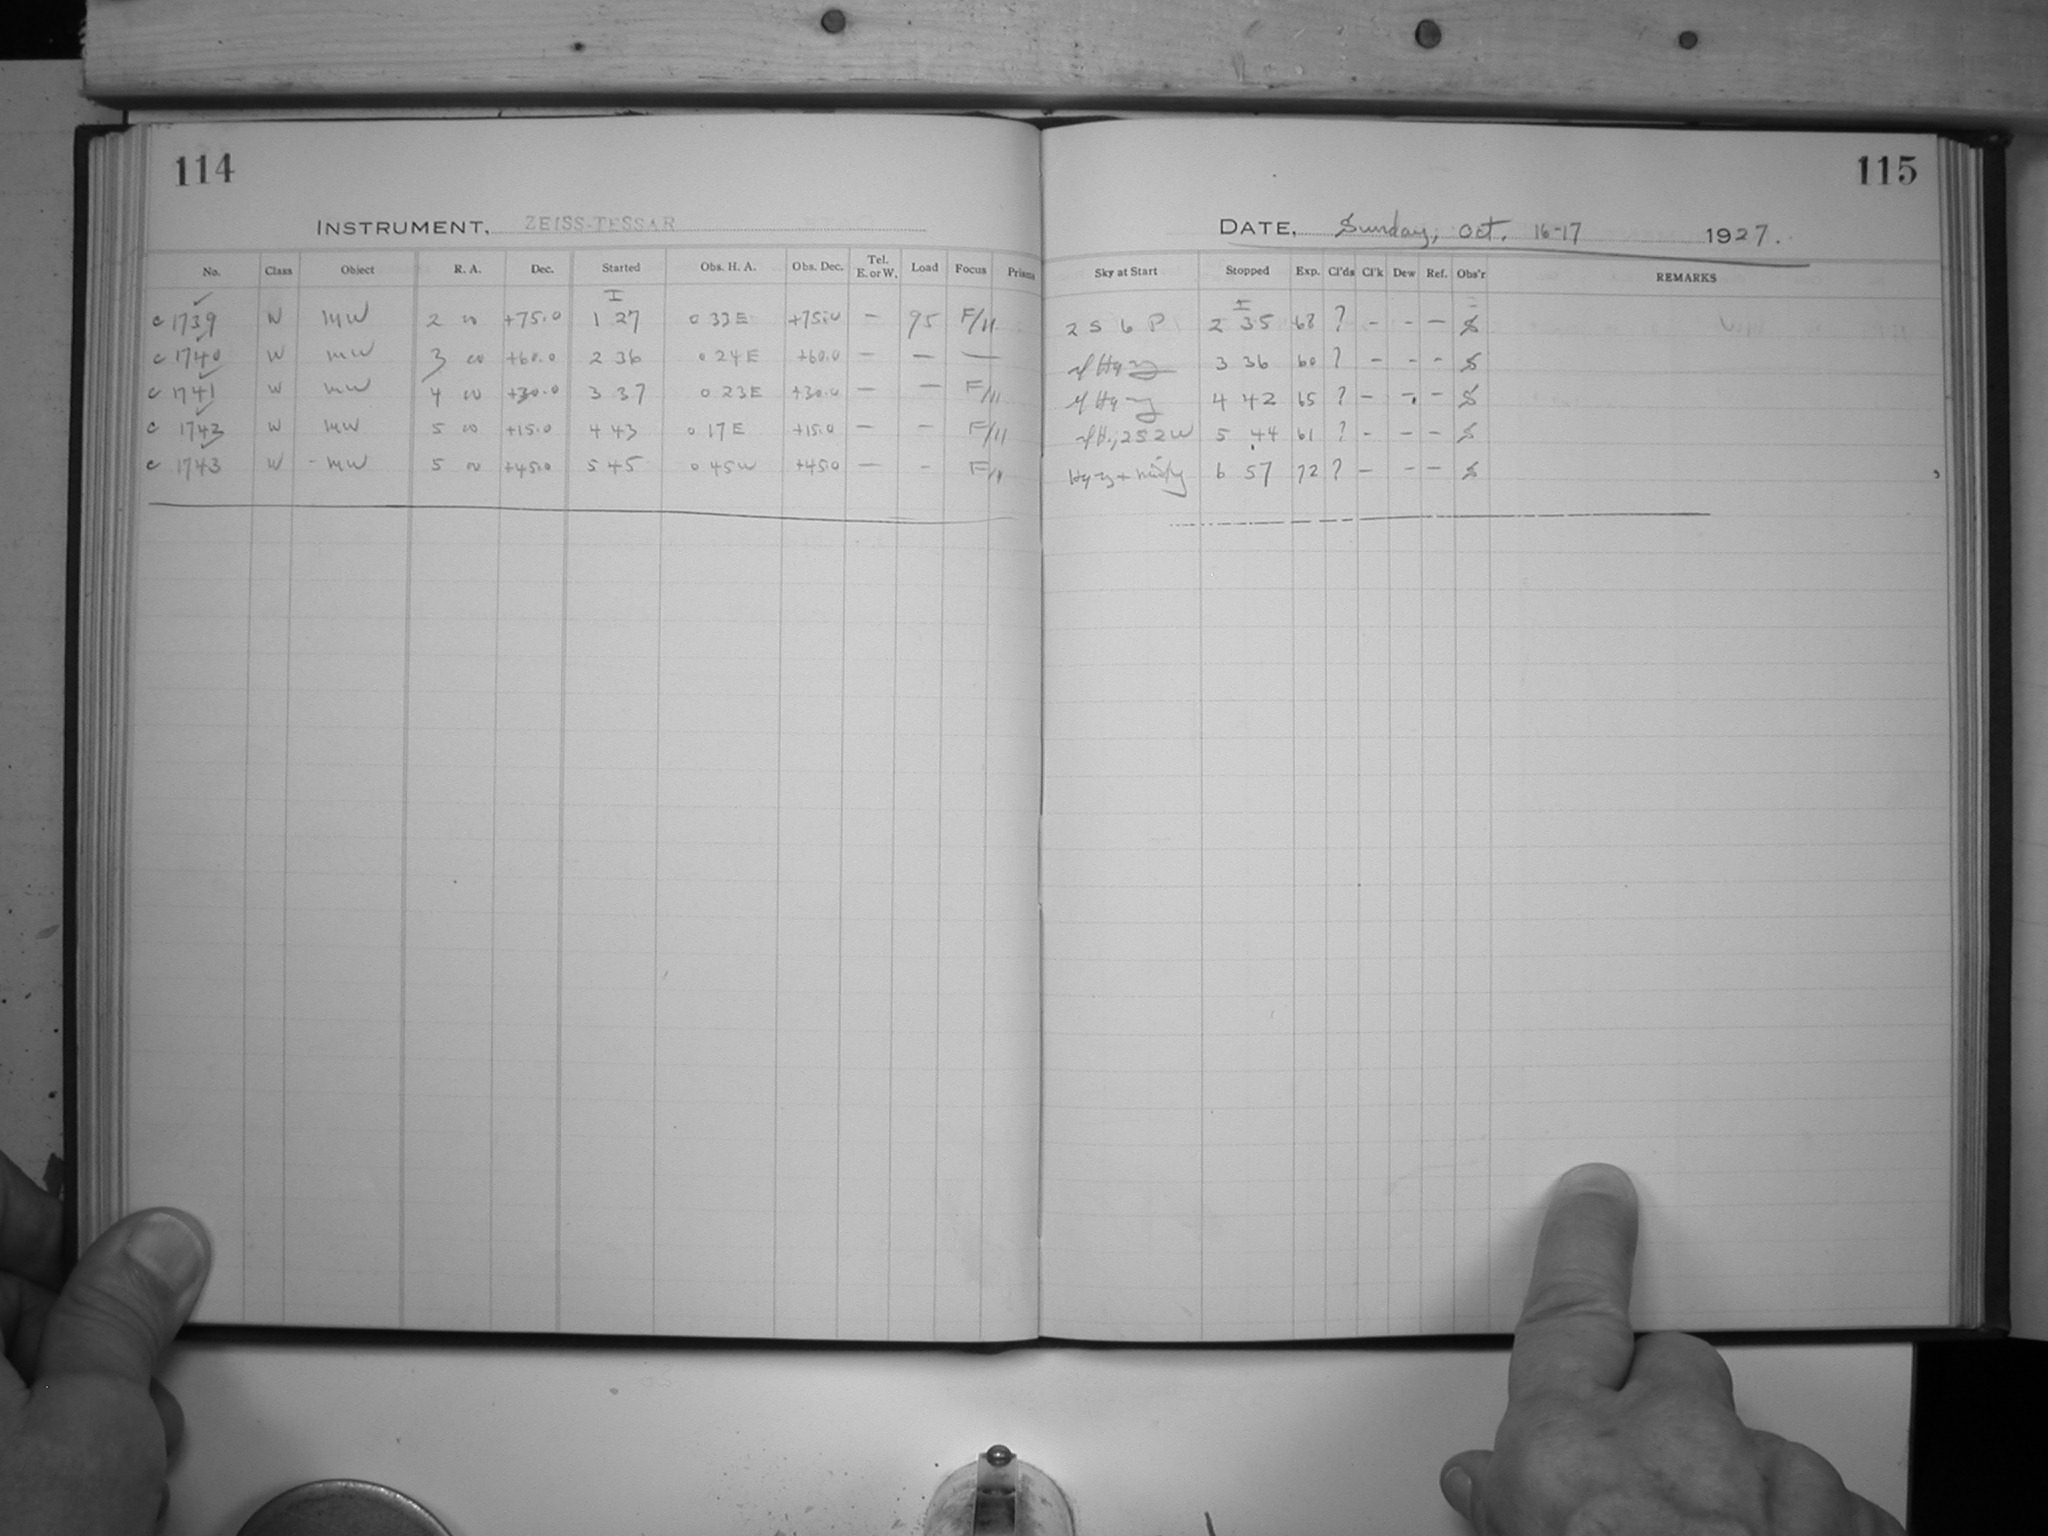 114
INSTRUMENT, ZEISS-TESSAR
No. Class Object R. A. Dec. Started Obs. H. A. Obs. Dec. Tel. E. or W. Load Focus Prisms
I
c 1739 W MW 2 00 +75.0 1 27 0 33 E +75.0 — 95 F/11
c 1740 W MW 3 00 +60.0 2 36 0 24 E +60.0 — — —
c 1741 W MW 4 00 +30.0 3 37 0 23 E +30.0 — — F/11
c 1742 W MW 5 00 +15.0 4 43 0 17 E +15.0 — - F/11
c 1743 W - MW 5 00 +45.0 5 45 0 45 W +45.0 — - F/11
115
DATE, Sunday, Oct. 16-17 1927.
Sky at Start Stopped Exp. Cl'ds Cl'k Dew Ref. Obs'r REMARKS
I
2 S 6 P 2 35 68 ? - - —
3 36 60 ? - - -
4 42 65 ? - - -
2 S 2 W 5 44 61 ? - - -
6 57 72 ? - - -